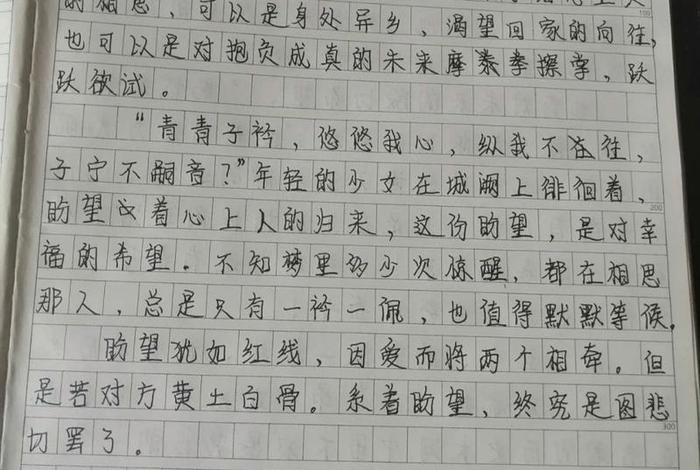 的相思，可以是身处异乡、渴望回家的向往，
也可以是对抱负成真的未来摩泰拳擦掌，跃
跃欲试。
“青青子衿，悠悠我心，纵我不往，
子宁不嗣音？”年轻的少女在城阙上徘徊着、
盼望着心上人的归来，这份盼望，是对幸
福的希望。不知梦里多少次惊醒，都在相思
那人，总是只有一衿一佩，也值得默默等候。
盼望犹如红线，因爱而将两个相牵。但
是若对方黄土白骨。系着盼望，终究是图悲
切罢了。
100
200
300